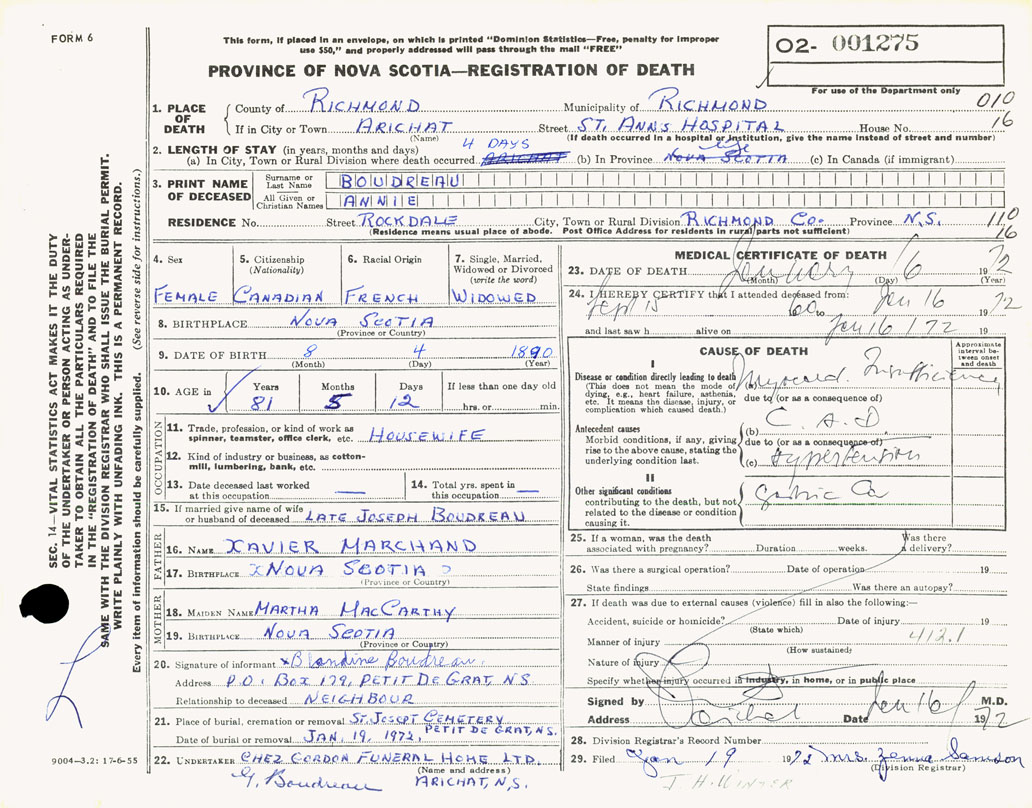 FORM 6
This form, if placed in an envelope, on which is printed "Dominion Statistics—Free, penalty for improper
use $50," and properly addressed will pass through the mail "FREE"
02- 001275
For use of the Department only
PROVINCE OF NOVA SCOTIA—REGISTRATION OF DEATH
1. PLACE OF DEATH
County of RICHMOND Municipality of RICHMOND 010
If in City or Town ARICHAT Street ST. ANN'S HOSPITAL House No. 16
(Name) (If death occurred in a hospital or institution, give the name instead of street and number)
2. LENGTH OF STAY (in years, months and days) 4 DAYS
(a) In City, Town or Rural Division where death occurred ARICHAT (b) In Province life NOVA SCOTIA (c) In Canada (if immigrant)
3. PRINT NAME OF DECEASED
Surname or Last Name BOUDREAU
All Given or Christian Names ANNIE
RESIDENCE No. Street ROCKDALE City, Town or Rural Division RICHMOND CO. Province N.S. 110
(Residence means usual place of abode. Post Office Address for residents in rural parts not sufficient) 16
4. Sex FEMALE
5. Citizenship (Nationality) CANADIAN
6. Racial Origin FRENCH
7. Single, Married, Widowed or Divorced (write the word) WIDOWED
8. BIRTHPLACE NOVA SCOTIA
(Province or Country)
9. DATE OF BIRTH 8 4 1890
(Month) (Day) (Year)
10. AGE in Years 81 Months 5 Days 12 If less than one day old hrs. or min.
OCCUPATION
11. Trade, profession, or kind of work as spinner, teamster, office clerk, etc. HOUSEWIFE
12. Kind of industry or business, as cotton-mill, lumbering, bank, etc.
13. Date deceased last worked at this occupation —
14. Total yrs. spent in this occupation —
15. If married give name of wife or husband of deceased LATE JOSEPH BOUDREAU
FATHER
16. NAME XAVIER MARCHAND
17. BIRTHPLACE X NOVA SCOTIA
(Province or Country)
MOTHER
18. MAIDEN NAME MARTHA MACCARTHY
19. BIRTHPLACE NOVA SCOTIA
(Province or Country)
20. Signature of informant x Blandine Boudreau
Address P.O. BOX 179, PETIT DE GRAT, N.S.
Relationship to deceased NEIGHBOUR
21. Place of burial, cremation or removal ST. JOSEPT CEMETERY
PETIT DE GRAT, N.S.
Date of burial or removal JAN. 19, 1972,
22. UNDERTAKER CHEZ GORDON FUNERAL HOME LTD.
(Name and address)
G. Boudreau ARICHAT, N.S.
MEDICAL CERTIFICATE OF DEATH
23. DATE OF DEATH January 16 1972
(Month) (Day) (Year)
24. I HEREBY CERTIFY that I attended deceased from:
Sept 15 60 to Jan 16 1972
and last saw h alive on Jan 16 / 72 19
CAUSE OF DEATH
Approximate interval between onset and death
I
Disease or condition directly leading to death
(This does not mean the mode of dying, e.g., heart failure, asthenia, etc. It means the disease, injury, or complication which caused death.)
(a) Myocard. Insufficiency
due to (or as a consequence of)
Antecedent causes
Morbid conditions, if any, giving rise to the above cause, stating the underlying condition last.
(b) C. A. D
due to (or as a consequence of)
(c) Hypertension
II
Other significant conditions
contributing to the death, but not related to the disease or condition causing it.
Gastric Ca
25. If a woman, was the death associated with pregnancy? Duration weeks. Was there a delivery?
26. Was there a surgical operation? Date of operation 19
State findings Was there an autopsy?
27. If death was due to external causes (violence) fill in also the following:—
Accident, suicide or homicide? Date of injury 19
(State which)
Manner of injury 412.1
(How sustained)
Nature of injury
Specify whether injury occurred in industry, in home, or in public place
Signed by M.D.
Address Arichat Date Jan 16 1972
28. Division Registrar's Record Number
29. Filed Jan 19 1972 Mrs. Zenna Samson
(Division Registrar)
J. H. WINTER
SEC. 14—VITAL STATISTICS ACT MAKES IT THE DUTY
OF THE UNDERTAKER OR PERSON ACTING AS UNDER-
TAKER TO OBTAIN ALL THE PARTICULARS REQUIRED
IN THE "REGISTRATION OF DEATH" AND TO FILE THE
SAME WITH THE DIVISION REGISTRAR WHO SHALL ISSUE THE BURIAL PERMIT.
WRITE PLAINLY WITH UNFADING INK. THIS IS A PERMANENT RECORD.
Every item of information should be carefully supplied. (See reverse side for instructions.)
9004-3.2: 17-6-55